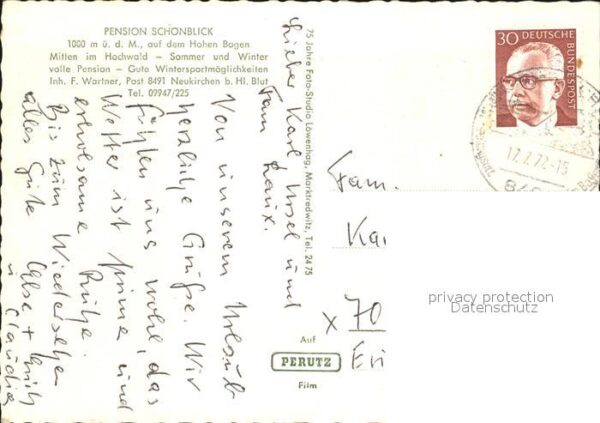 PENSION SCHÖNBLICK
1000 m ü. d. M., auf dem Hohen Bogen
Mitten im Hochwald – Sommer und Winter
volle Pension – Gute Wintersportmöglichkeiten
Inh. F. Wartner, Post 8491 Neukirchen b. Hl. Blut
Tel. 09947/225
Lieber Karl, Ursel und
Fam.
Von unserem Urlaub
herzliche Grüße. Wir
fühlen uns wohl, das
Wetter ist prima und
erholsame Ruhe.
Bis zum Wiedersehen
alles Gute
u. Claudia
75 Jahre Foto-Studio Löwenhag, Marktredwitz, Tel. 24 75
30 DEUTSCHE
BUNDESPOST
17.7.72-15
Fam.
Kai
x 70
Eri
Auf
PERUTZ
Film
privacy protection
Datenschutz